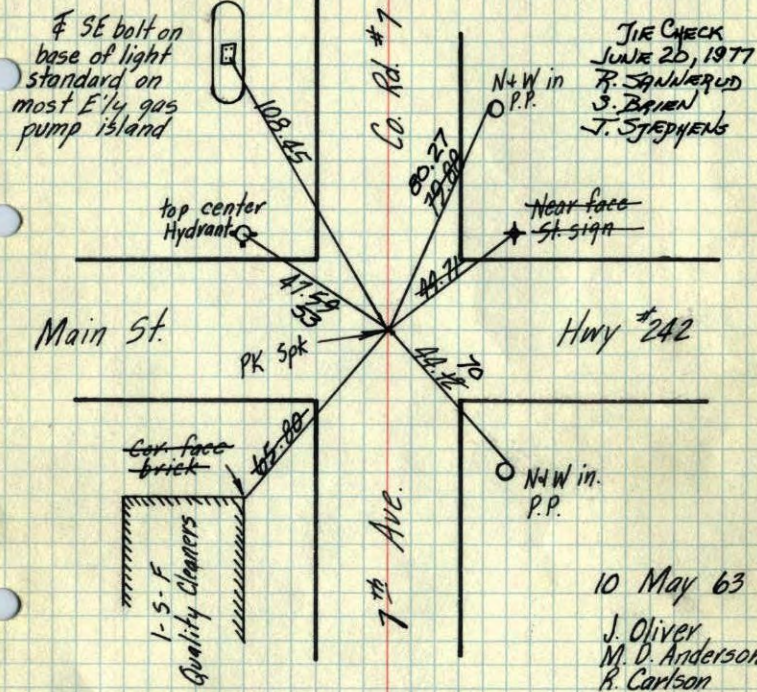 ₵ SE bolt on
base of light
standard on
most E'ly gas
pump island
108.45
Co. Rd. #7
N+W in
P.P.
80.27
79.88
TIE CHECK
JUNE 20, 1977
R. SANNERUD
S. BRIEN
J. STEPHENS
top center
Hydrant
Near face
St. sign
47.59
53
44.71
Main St.
PK Spk
Hwy #242
44.12
70
Cor. face
brick
65.80
N+W in.
P.P.
1-S-F
Quality Cleaners
7th Ave.
10 May 63
J. Oliver
M. D. Anderson
R. Carlson